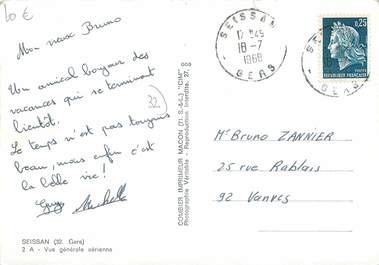 10 €
Mon vieux Bruno
Un amical bonjour des
vacances qui se terminent
bientôt.
Le temps n'est pas toujours
beau, mais enfin c'est
la belle vie!
Guy Michelle
32
SEISSAN (32. Gers)
2 A - Vue générale aérienne
COMBIER IMPRIMEUR MACON (S.-&-L.) "CIM"
Véritable - Reproduction Interdite.
SEISSAN
17 H45
18-7
1968
GERS
0,25
REPUBLIQUE FRANÇAISE
POSTES
SEISSAN
GERS
Mr Bruno ZANNIER
25 rue Rablais
92 Vanves